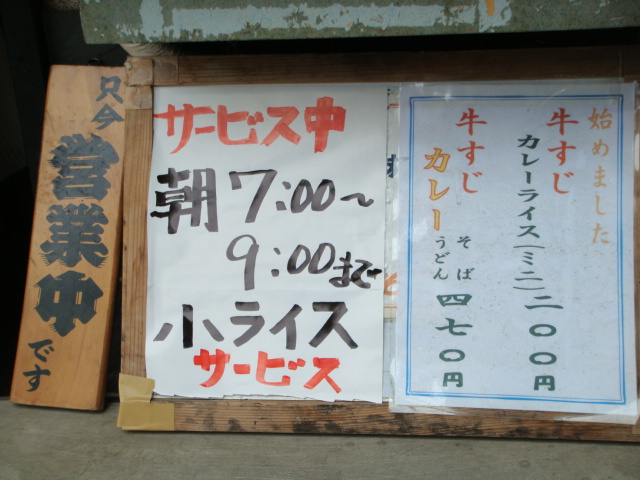 只今
営業中
です
サービス中
朝7:00〜
9:00まで
小ライス
サービス
始めました
牛すじ
カレーライス(ミニ)二00円
牛すじ
カレー
そば
うどん
四七0円